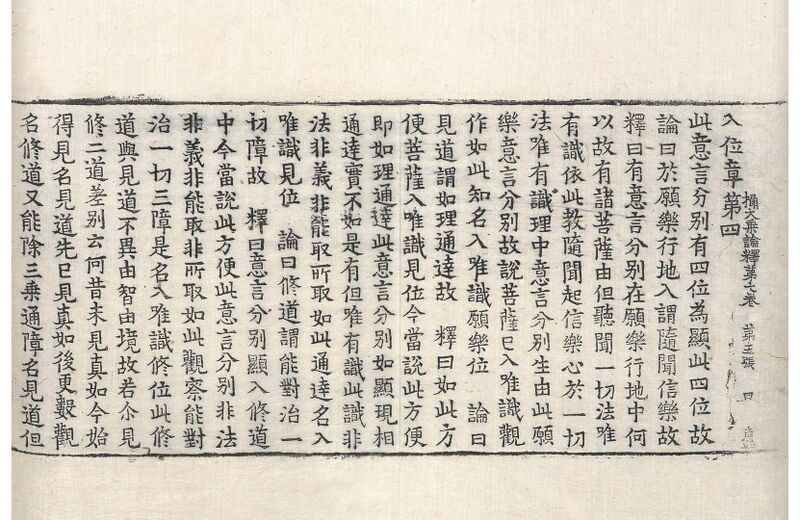 攝大乘論釋第七卷 第五張 日
入位章第四
此意言分別有四位為顯此四位故
論曰於願樂行地入謂隨聞信樂故
釋曰有意言分別在願樂行地中何
以故有諸菩薩由但聽聞一切法唯
有識依此教隨聞起信樂心於一切
法唯有識理中意言分別生由此願
樂意言分別故說菩薩已入唯識觀
作如此知名入唯識願樂位 論曰
見道謂如理通達故 釋曰如此方
便菩薩入唯識見位今當說此方便
即如理通達此意言分別如顯現相
通達實不如是有但唯有識此識非
法非義非能取所取如此通達名入
唯識見位 論曰修道謂能對治一
切障故 釋曰意言分別顯入修道
中今當說此方便此意言分別非法
非義非能取非所取如此觀察能對
治一切三障是名入唯識修位此修
道與見道不異由智由境故若尒見
修二道差別云何昔未見真如今始
得見名見道先已見真如後更數觀
名修道又能除三乘通障名見道但